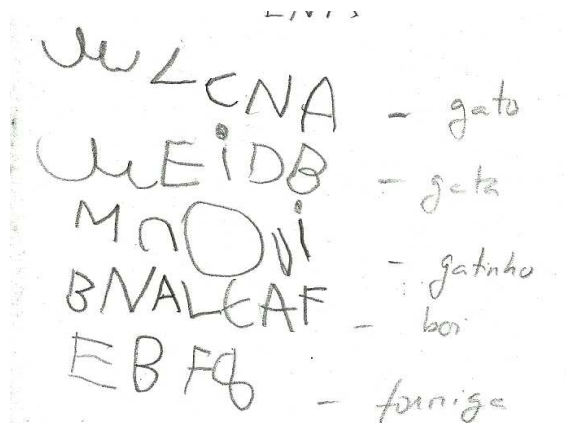 LCNA - gato
EiDB - gata
MnOvi - gatinho
BNALEAF - boi
EBF8 - formiga